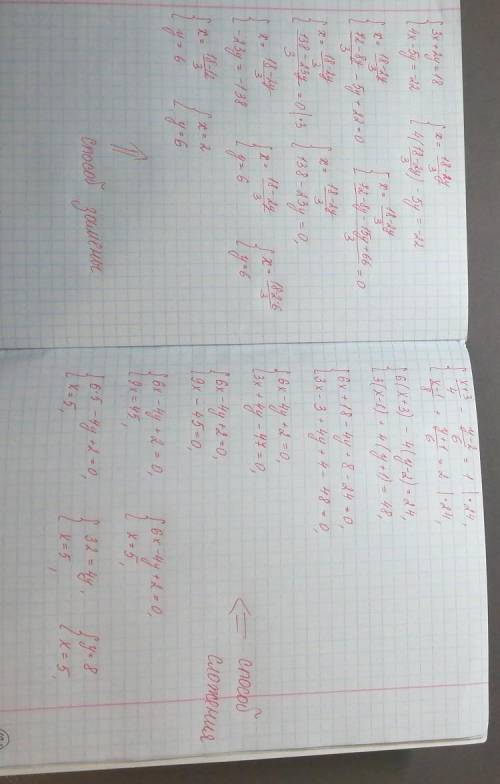 {3x+2y=18
{4x-5y=-22
{x = (18-2y)/3
{4((18-2y)/3) - 5y = -22
{x = (18-2y)/3
{(72-8y)/3 - 5y + 22 = 0
{x = (18-2y)/3
{(72-8y-15y+66)/3 = 0
{x = (18-2y)/3
{(138-23y)/3 = 0 | ·3
{x = (18-2y)/3
{138-23y=0,
{x = (18-2y)/3
{-23y=-138
{x = (18-2y)/3
{y=6
{x = (18-2·6)/3
{y=6
{x = (18-12)/3
{y=6
{x=2
{y=6
↑
способ замены
{(x+3)/4 - (y-2)/6 = 1 | ·24,
{(x-1)/8 + (y+1)/6 = 2 | ·24,
{6(x+3)-4(y-2)=24,
{3(x-1)+4(y+1)=48,
{6x+18-4y+8-24=0,
{3x-3+4y+4-48=0,
{6x-4y+2=0,
{3x+4y-47=0,
{6x-4y+2=0,
{9x-45=0,
{6x-4y+2=0,
{9x=45,
{6x-4y+2=0,
{x=5,
{6·5-4y+2=0,
{x=5,
{32=4y,
{x=5,
{y=8
{x=5,
⇐ способ
сложения